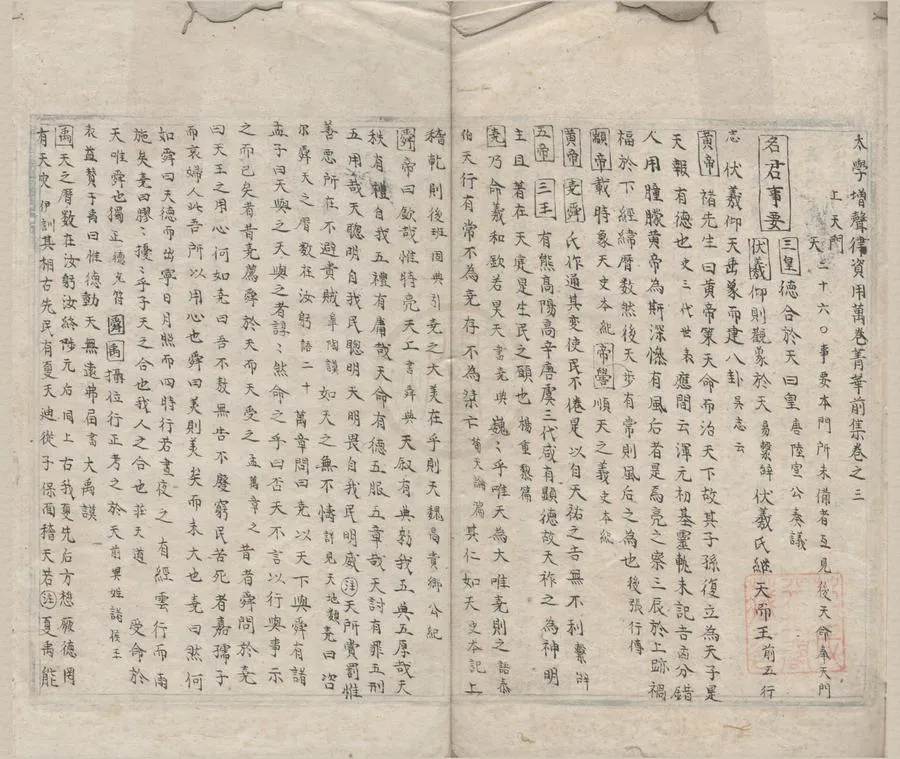 太學增聲律資用萬卷菁華前集卷之三
上天門
天 二十六〇事要本門所未備者互見後天命奉天門
名君事要 三皇 德合於天曰皇 唐陸宣公奏議
伏羲 仰則觀象於天 易繫辭 伏羲氏繼天而王 前五行
志 伏羲仰天垂象而建八卦 吳志云
黃帝 褚先生曰黃帝策天命而治天下故其子孫復立為天子是
天報有德也 史三代世表 應間云渾元初基靈軌未記吉凶分錯
人用朣朦黃帝為斯深慘有風后者是焉亮之察三辰於上跡禍
福於下經緯曆數然後天步有常則風后之為也 後張行傳
顓帝 載時象天 史本紀 帝嚳 順天之義 史本紀
黃帝 堯舜 氏作通其變使民不倦是以自天祐之吉無不利 繫辭
五帝 三王 有熊高陽高辛唐虞三代咸有顯德故天祚之為神明
主且著在天庭是生民之願也 楊重黎篇
堯 乃命羲和欽若昊天 書堯典 巍〻乎唯天為大唯堯則之 語泰
伯 天行有常不為堯存不為桀亡 荀天論篇 其仁如天 史本記上
稽乾則 後班固典引 堯之大美在乎則天 魏高貴鄉公紀
舜 帝曰欽哉惟時亮天工 書舜典 天叙有典勑我五典五厚哉天
秩有禮自我五禮有庸哉天命有德五服五章哉天討有罪五刑
五用哉天聰明自我民聰明天明畏自我民明威 注 天所賞罰惟
善惡所在不避貴賤 皋陶謨 如天之無不幬 詳見天地類 堯曰咨
尔舜天之曆數在汝躬 語二十 萬章問曰堯以天下與舜有諸
孟子曰天與之天與之者諄〻然命之乎曰否天不言以行與事示
之而已矣昔者堯薦舜於天而天受之 孟萬章 昔者舜問於堯
曰天王之用心何如堯曰吾不敖無告不廢窮民苦死者嘉孺子
而哀婦人此吾所以用心也舜曰美則美矣而未大也堯曰然何
如舜曰天德而出寧日月照而四時行若晝夜之有經雲行而雨
施矣堯曰膠〻擾〻乎子天之合也我人之合也 莊天道 受命於
天唯舜也獨正 德充符 舜禹 攝位行正考之於天 前異姓諸侯王
表 益贊于禹曰惟德動天無遠弗屆 書大禹謨
禹 天之曆數在汝躬汝終陟元后 同上 古我夏先后方懋厥德罔
有天災 伊訓 其相古先民有夏天迪從子保面稽天若 注 夏禹能